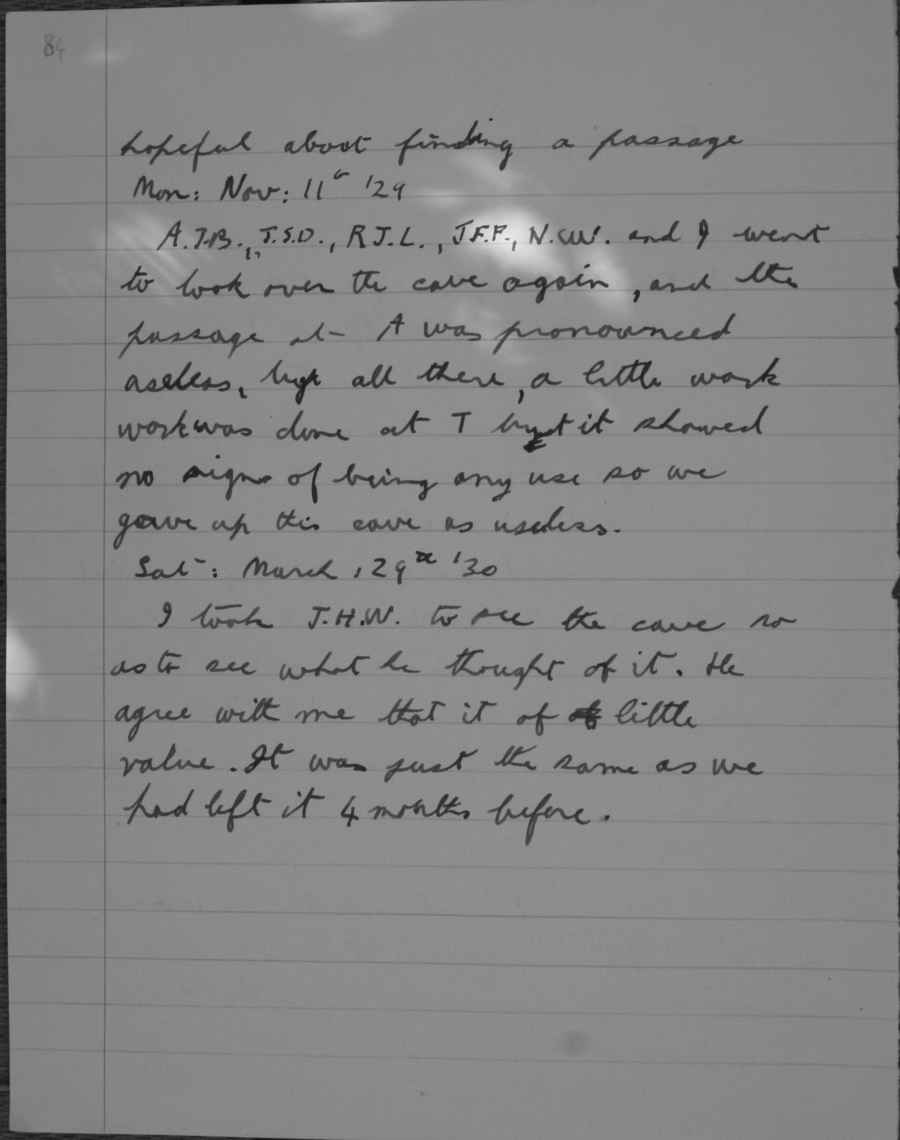 84
hopeful about finding a passage
Mon: Nov: 11th '29
A.J.B., J.S.D., R J.L., J F.P., N.W. and I went
to look over the cave again, and the
passage at A was pronounced
useless, by all there, a little work
work was done at T but it showed
no signs of being any use so we
gave up this cave as useless.
Sat: March, 29th '30
I took J.H.W. to see the cave so
as to see what he thought of it. He
agree with me that it of little
value. It was just the same as we
had left it 4 months before.